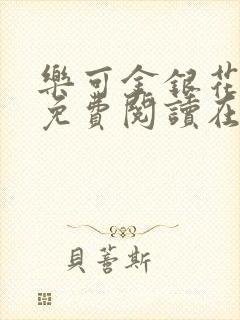 樂可金銀花
免費閱讀在
貝蒼斯